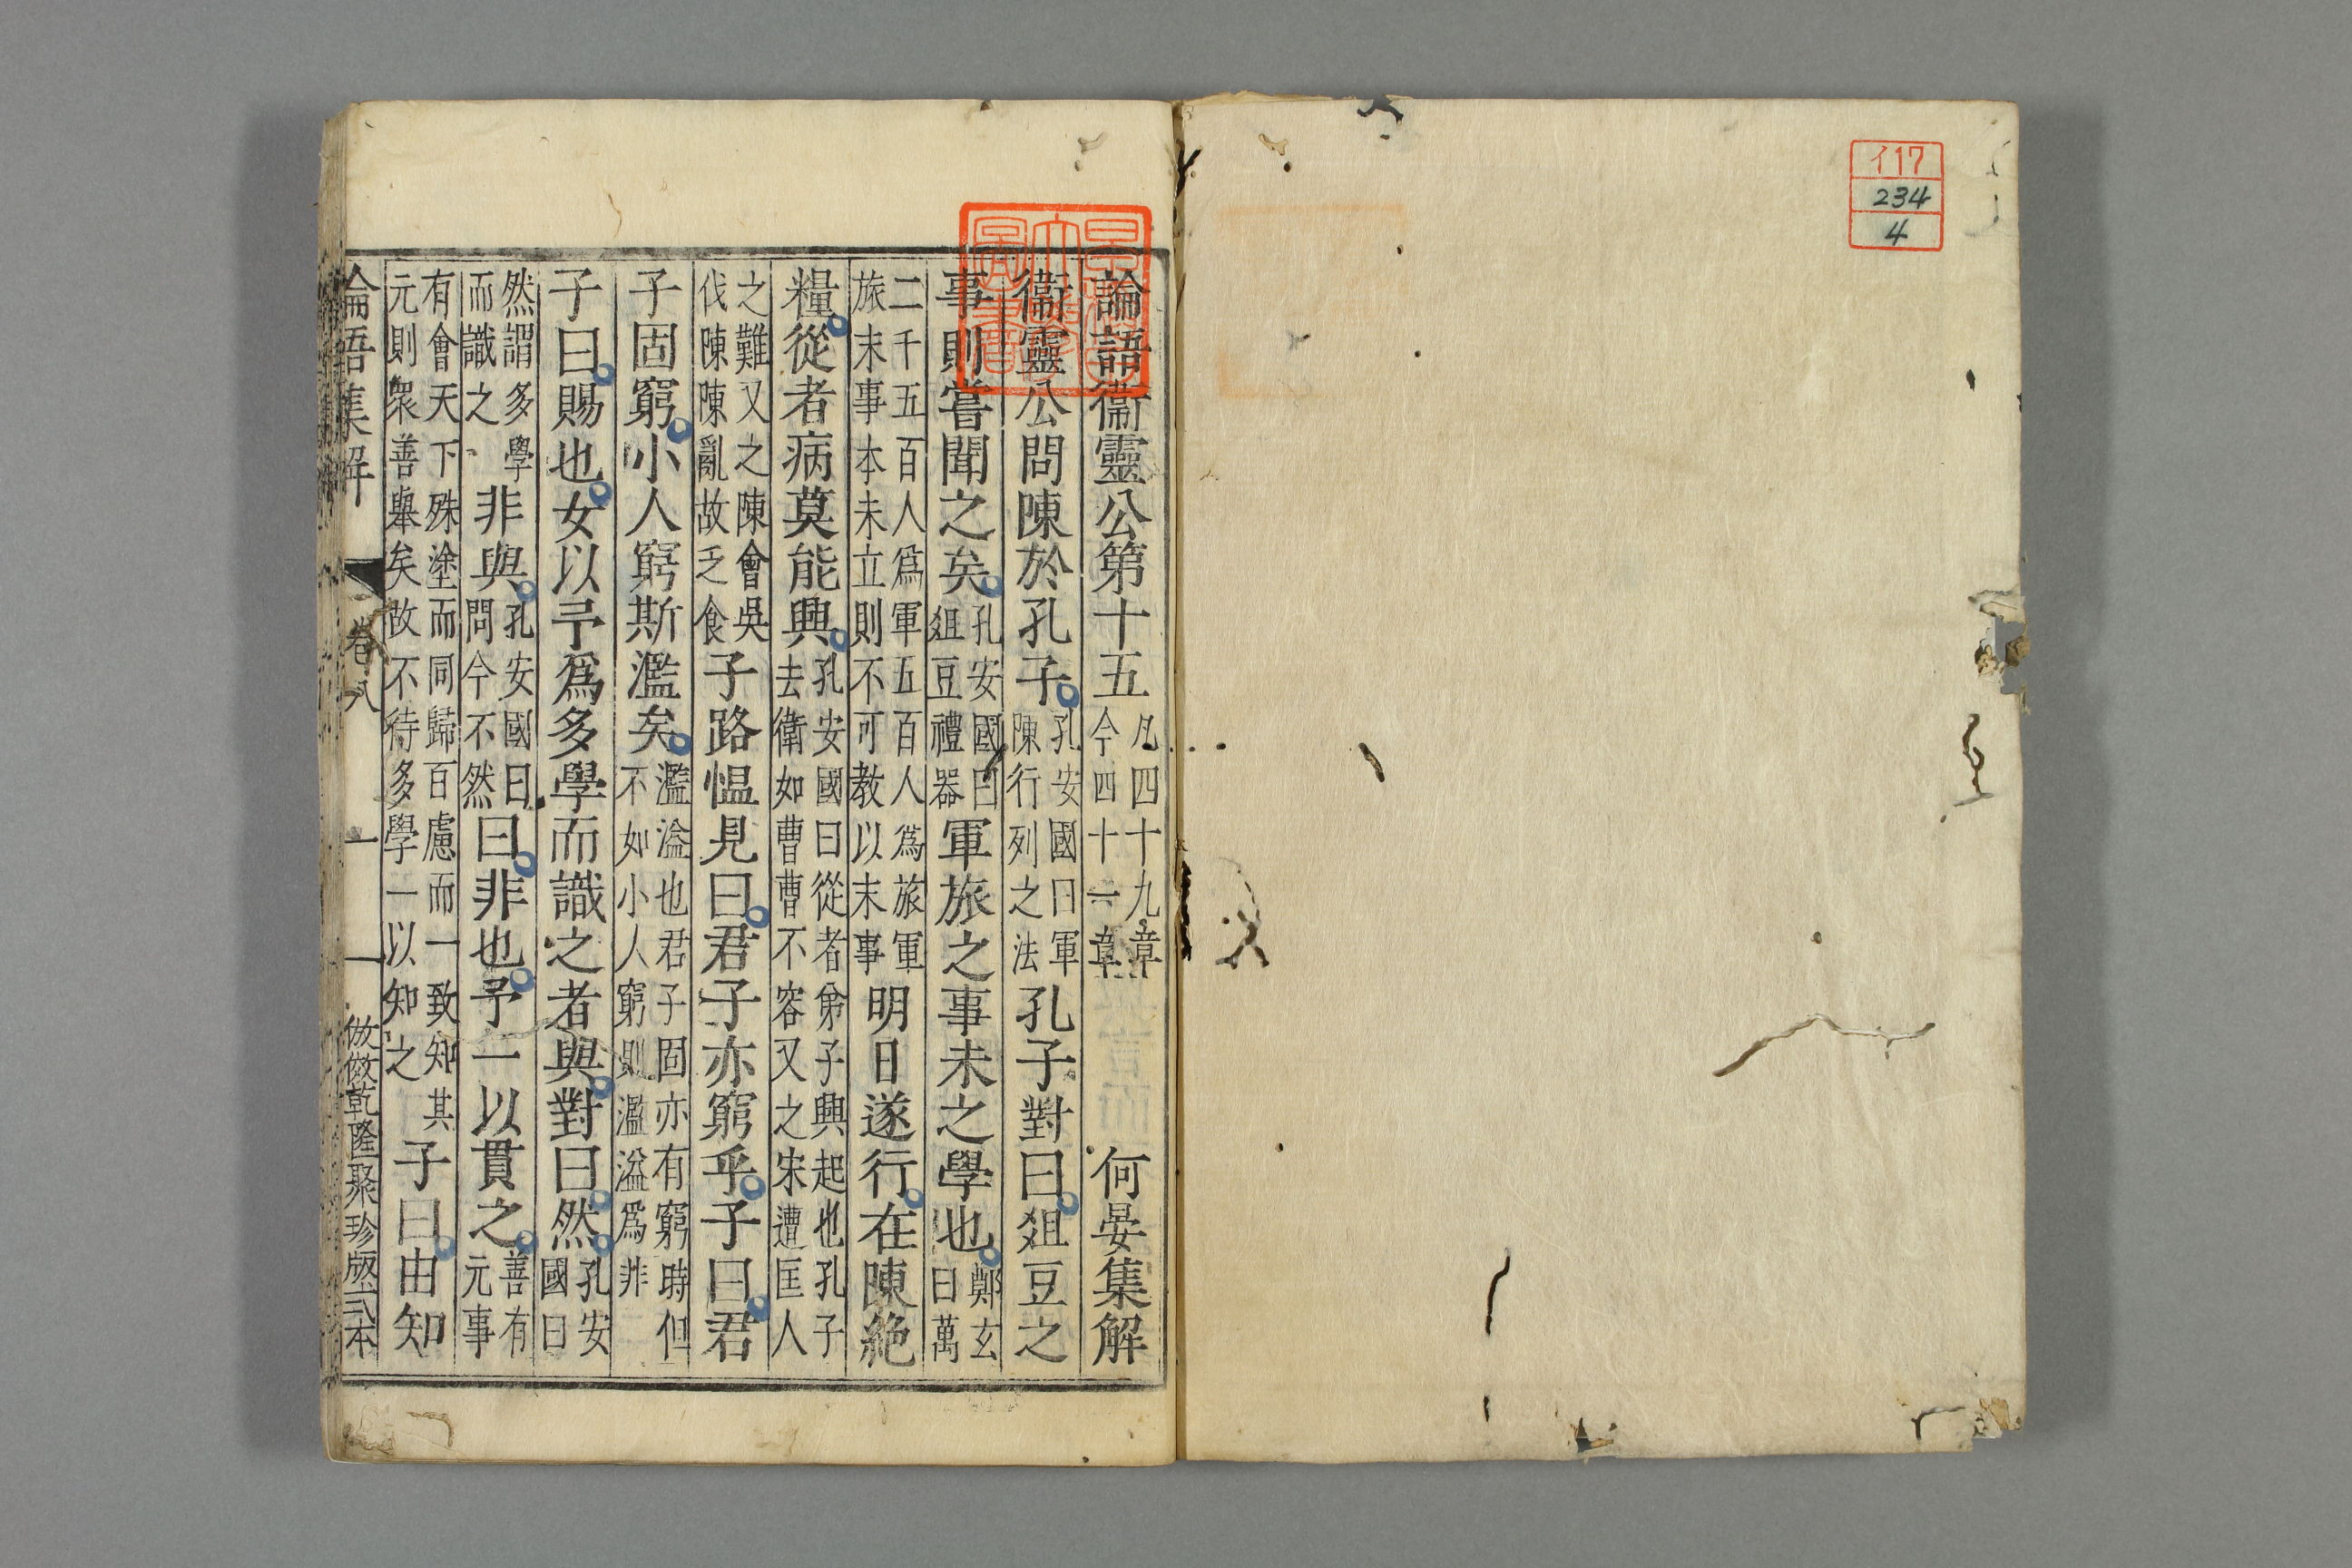 イ17
234
4
論語衞靈公第十五 凡四十九章 今四十一章 何晏集解
衞靈公問陳於孔子 孔安國曰軍陳行列之法 孔子對曰俎豆之
事則嘗聞之矣 孔安國曰俎豆禮器 軍旅之事未之學也 鄭玄曰萬
二千五百人爲軍五百人爲旅軍旅末事本未立則不可教以末事 明日遂行在陳絶
糧從者病莫能興 孔安國曰從者弟子興起也孔子去衛如曹曹不容又之宋遭匡人
之難又之陳會吳伐陳陳亂故乏食 子路慍見曰君子亦窮乎子曰君
子固窮小人窮斯濫矣 濫溢也君子固亦有窮時但不如小人窮則濫溢爲非
子曰賜也女以予爲多學而識之者與對曰然 孔安國曰
然謂多學而識之 非與 孔安國曰問今不然 曰非也予一以貫之 善有元事
有會天下殊塗而同歸百慮而一致知其元則衆善舉矣故不待多學一以知之 子曰由知
論語集解 卷八 一 倣乾隆聚珍版式本